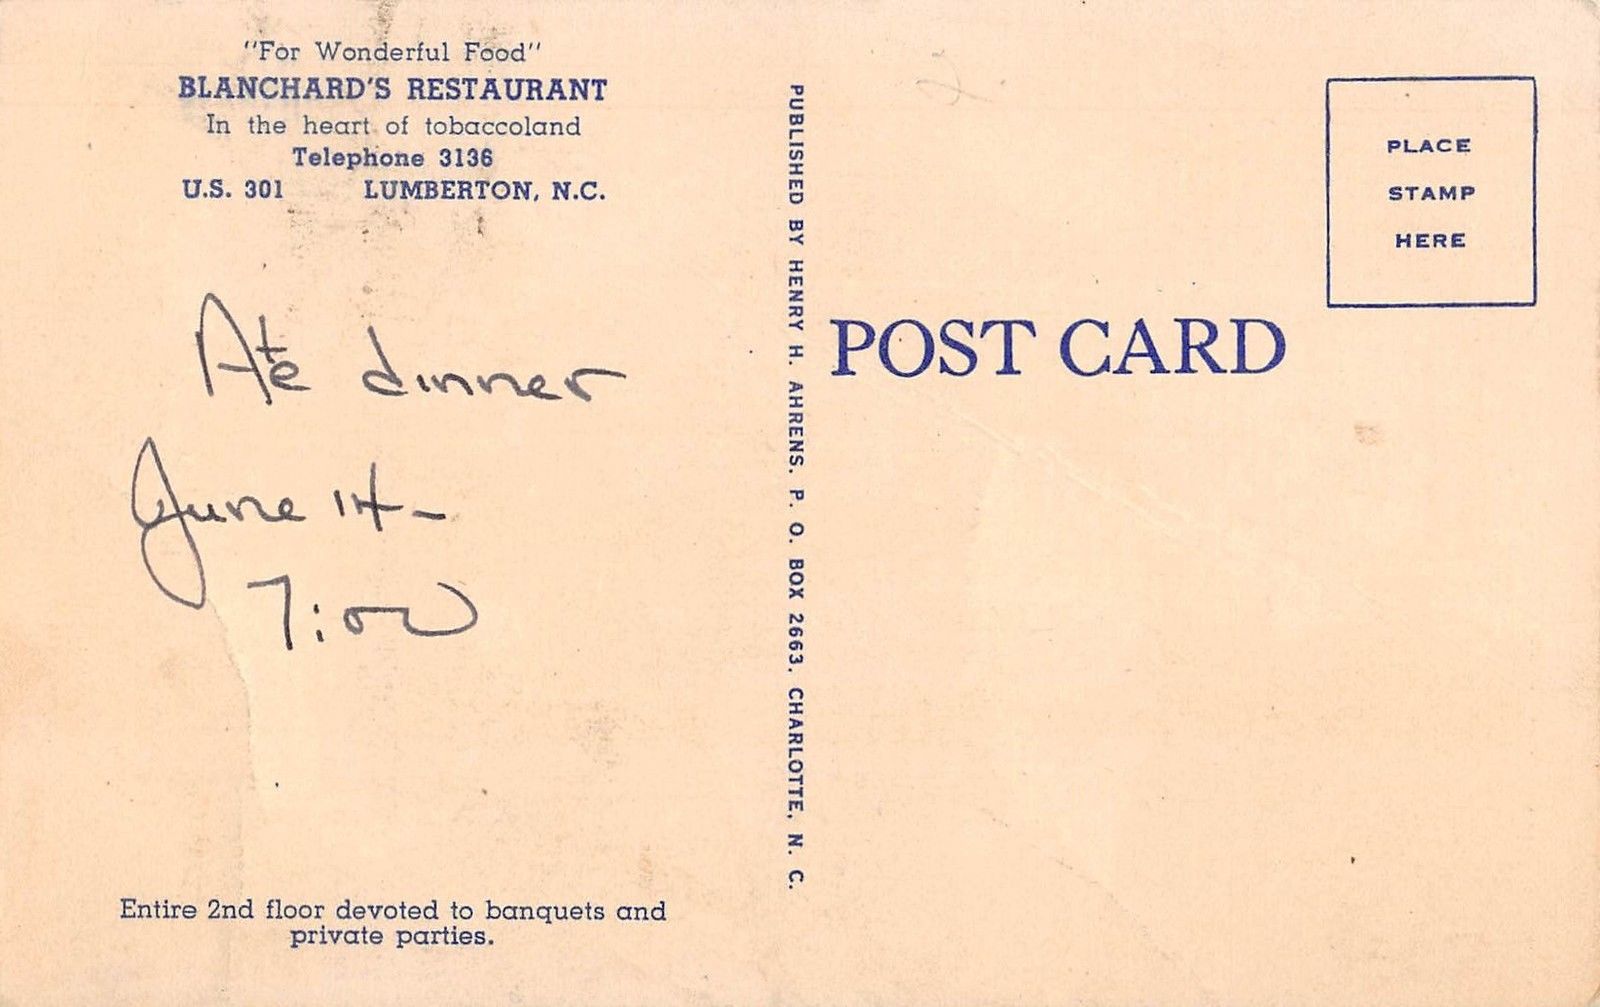 "For Wonderful Food"
BLANCHARD'S RESTAURANT
In the heart of tobaccoland
Telephone 3136
U.S. 301 LUMBERTON, N.C.
Ate dinner
June 14-
7:00
Entire 2nd floor devoted to banquets and
private parties.
PUBLISHED BY HENRY H. AHRENS, P. O. BOX 2663, CHARLOTTE, N. C.
POST CARD
PLACE
STAMP
HERE